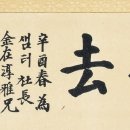 去
辛酉春為
샘터社長
金在淳雅兄